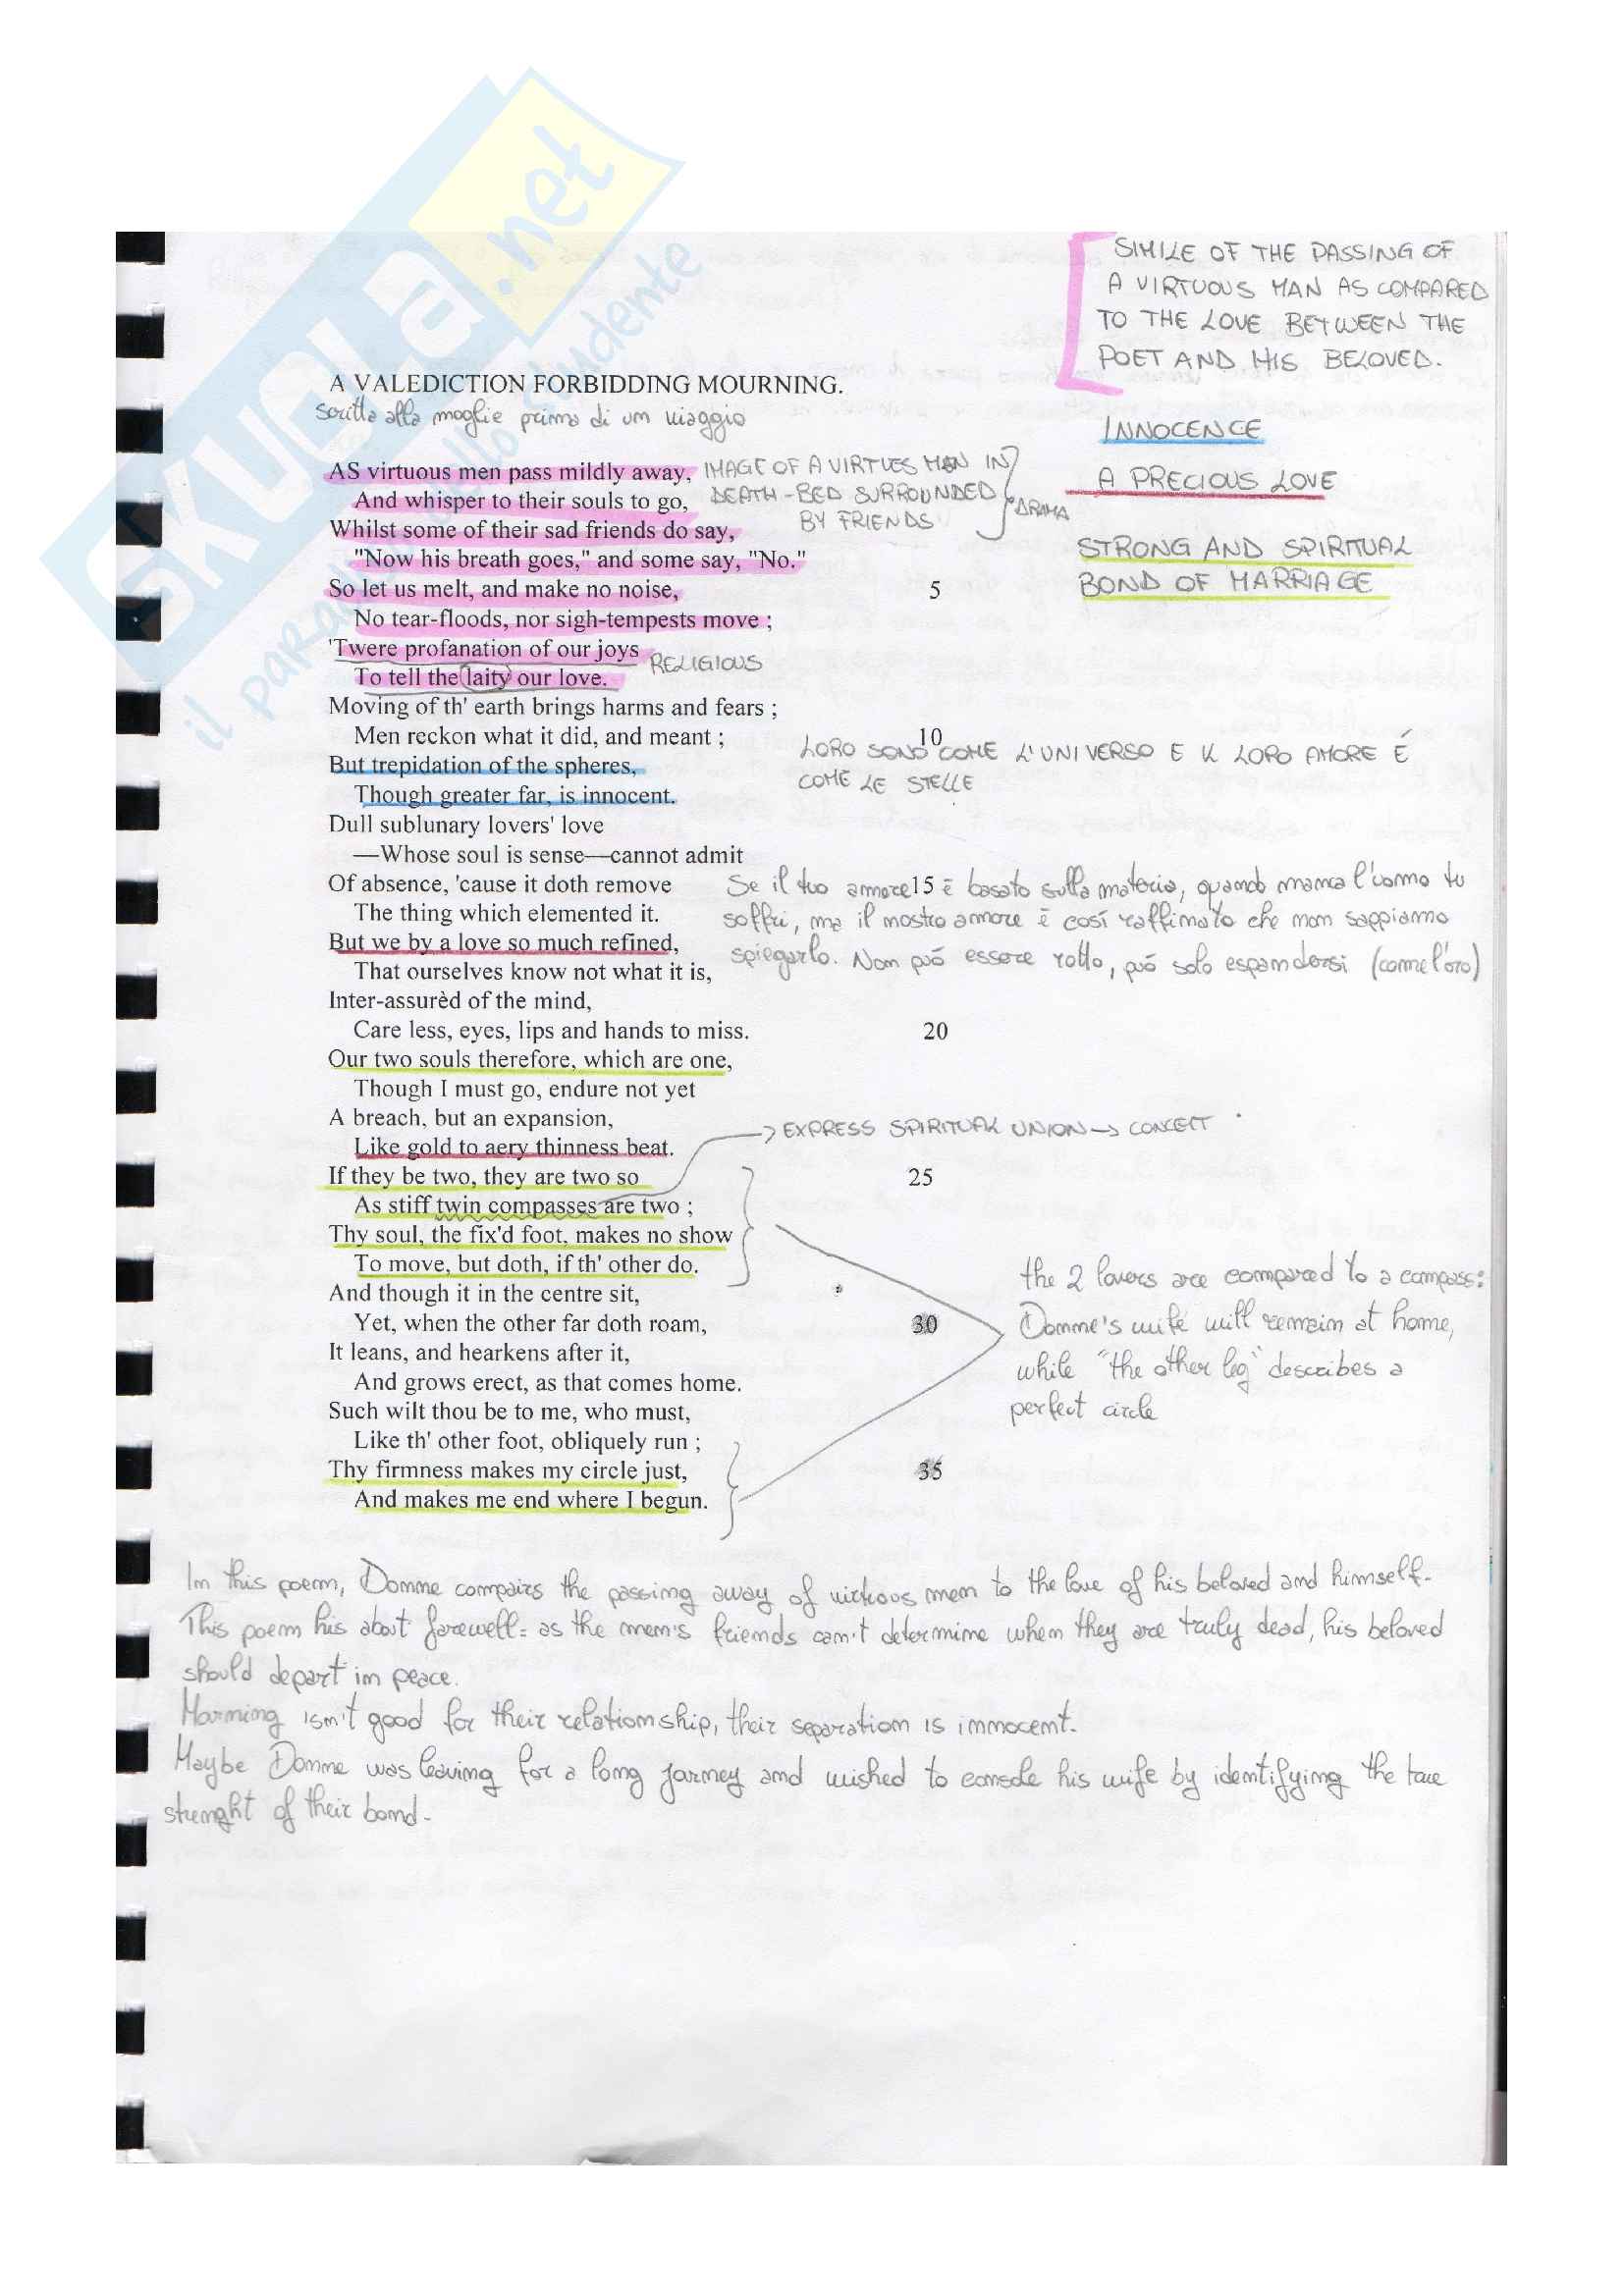 SKUOLA.net
il paradiso dello studente
SIMILE OF THE PASSING OF
A VIRTUOUS MAN AS COMPARED
TO THE LOVE BETWEEN THE
POET AND HIS BELOVED.
INNOCENCE
A PRECIOUS LOVE
STRONG AND SPIRITUAL
BOND OF MARRIAGE
A VALEDICTION FORBIDDING MOURNING.
scritta alla moglie prima di un viaggio
AS virtuous men pass mildly away, IMAGE OF A VIRTUES MAN IN
And whisper to their souls to go, DEATH-BED SURROUNDED DRAMA
BY FRIENDS
Whilst some of their sad friends do say,
"Now his breath goes," and some say, "No."
So let us melt, and make no noise, 5
No tear-floods, nor sigh-tempests move ;
'Twere profanation of our joys RELIGIOUS
To tell the laity our love.
Moving of th' earth brings harms and fears ;
Men reckon what it did, and meant ; 10
LORO SONO COME L'UNIVERSO E IL LORO AMORE É
COME LE STELLE
But trepidation of the spheres,
Though greater far, is innocent.
Dull sublunary lovers' love
—Whose soul is sense—cannot admit
Of absence, 'cause it doth remove 15
Se il tuo amore é basato sulla materia, quando manca l'uomo tu
soffri, ma il nostro amore é cosí raffinato che non sappiamo
spiegarlo. Non può essere rotto, può solo espandersi (come l'oro)
The thing which elemented it.
But we by a love so much refined,
That ourselves know not what it is,
Inter-assurèd of the mind,
Care less, eyes, lips and hands to miss. 20
Our two souls therefore, which are one,
Though I must go, endure not yet
A breach, but an expansion,
→ EXPRESS SPIRITUAL UNION → CONCEIT
Like gold to aery thinness beat.
If they be two, they are two so 25
As stiff twin compasses are two ;
Thy soul, the fix'd foot, makes no show
To move, but doth, if th' other do.
And though it in the centre sit,
Yet, when the other far doth roam, 30
It leans, and hearkens after it,
And grows erect, as that comes home.
the 2 lovers are compared to a compass:
Donne's wife will remain at home,
while "the other leg" describes a
perfect circle
Such wilt thou be to me, who must,
Like th' other foot, obliquely run ;
Thy firmness makes my circle just, 35
And makes me end where I begun.
In this poem, Donne compairs the passing away of virtuous men to the love of his beloved and himself.
This poem his about farewell: as the men's friends can't determine when they are truly dead, his beloved
should depart in peace.
Marning isn't good for their relationship, their separation is innocent.
Maybe Donne was leaving for a long jarney and wished to console his wife by identifying the true
strenght of their bond.